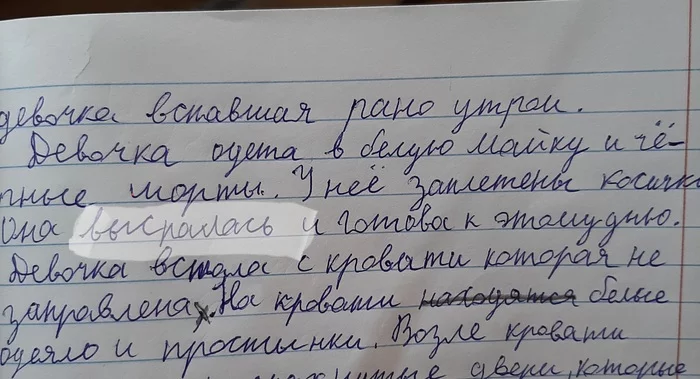 девочка вставшая рано утром.
Девочка одета в белую майку и чё-
рные шорты. У неё заплетены косички
Она высралась и готова к этому дню.
Девочка встала с кровати которая не
заправлена. На кровати находятся белые
одеяло и простынки. Возле кровати
двери, которые